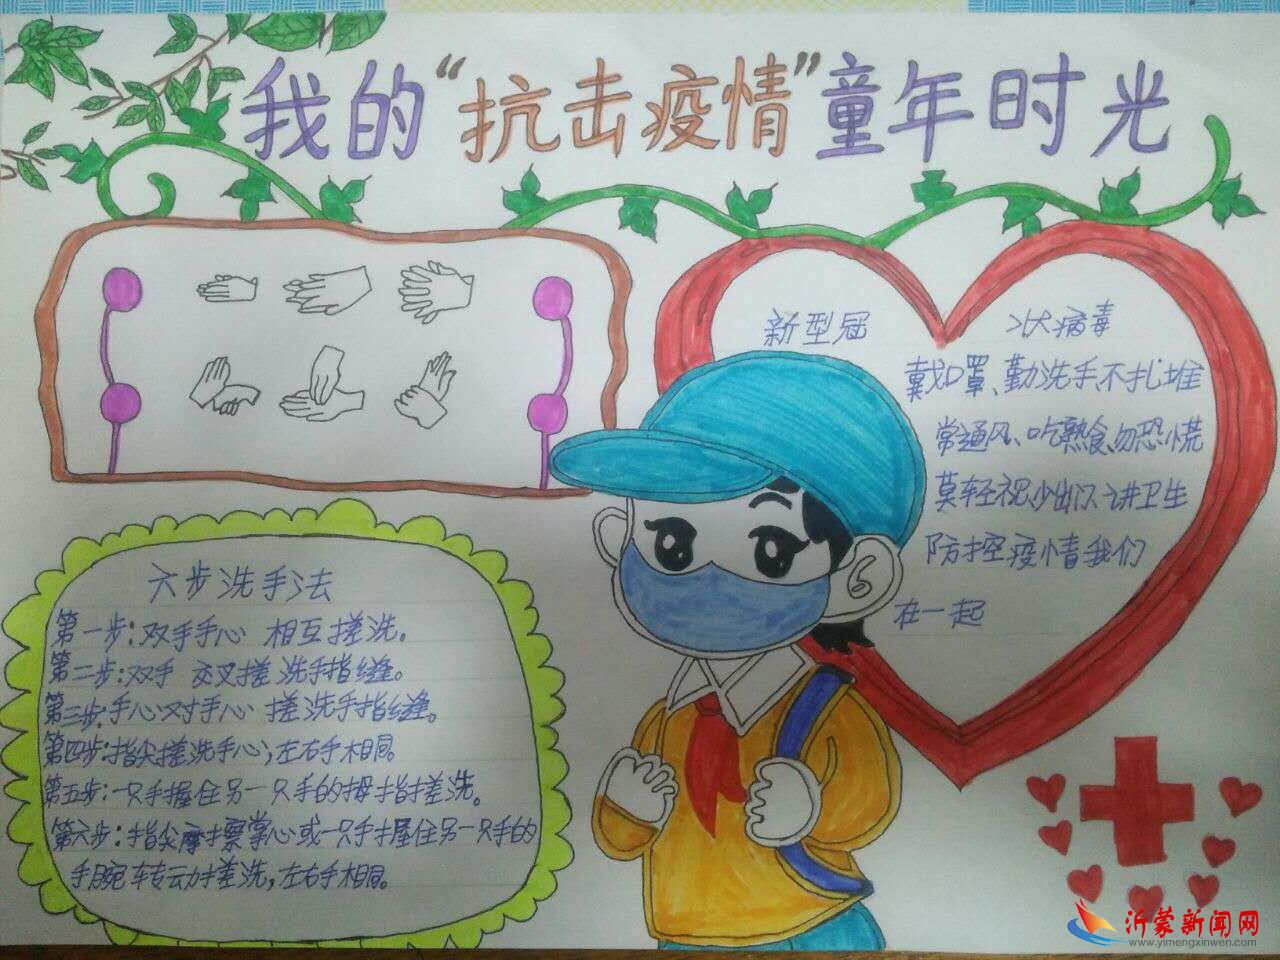 我的“抗击疫情”童年时光
新型冠状病毒
戴口罩、勤洗手不扎堆
常通风、吃熟食、勿恐慌
莫轻视少出门讲卫生
防控疫情我们
在一起
六步洗手法
第一步:双手手心 相互搓洗。
第二步:双手 交叉搓洗手指缝。
第三步:手心对手心 搓洗手指缝。
第四步:指尖搓洗手心,左右手相同。
第五步:一只手握住另一只手的拇指搓洗。
第六步:指尖摩擦掌心或一只手握住另一只手的
手腕转动搓洗,左右手相同。
沂蒙新闻网
www.yimengxinwen.com